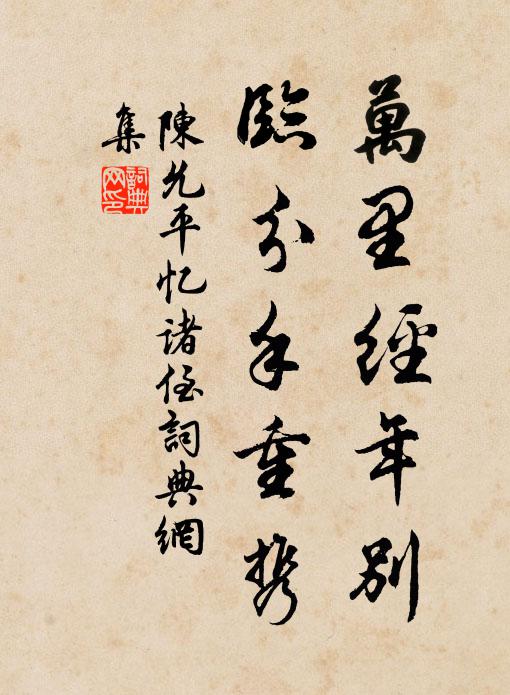 萬里經年別
臨分手重携
陳允平忆諸侄詞典網
集
詞典
网印